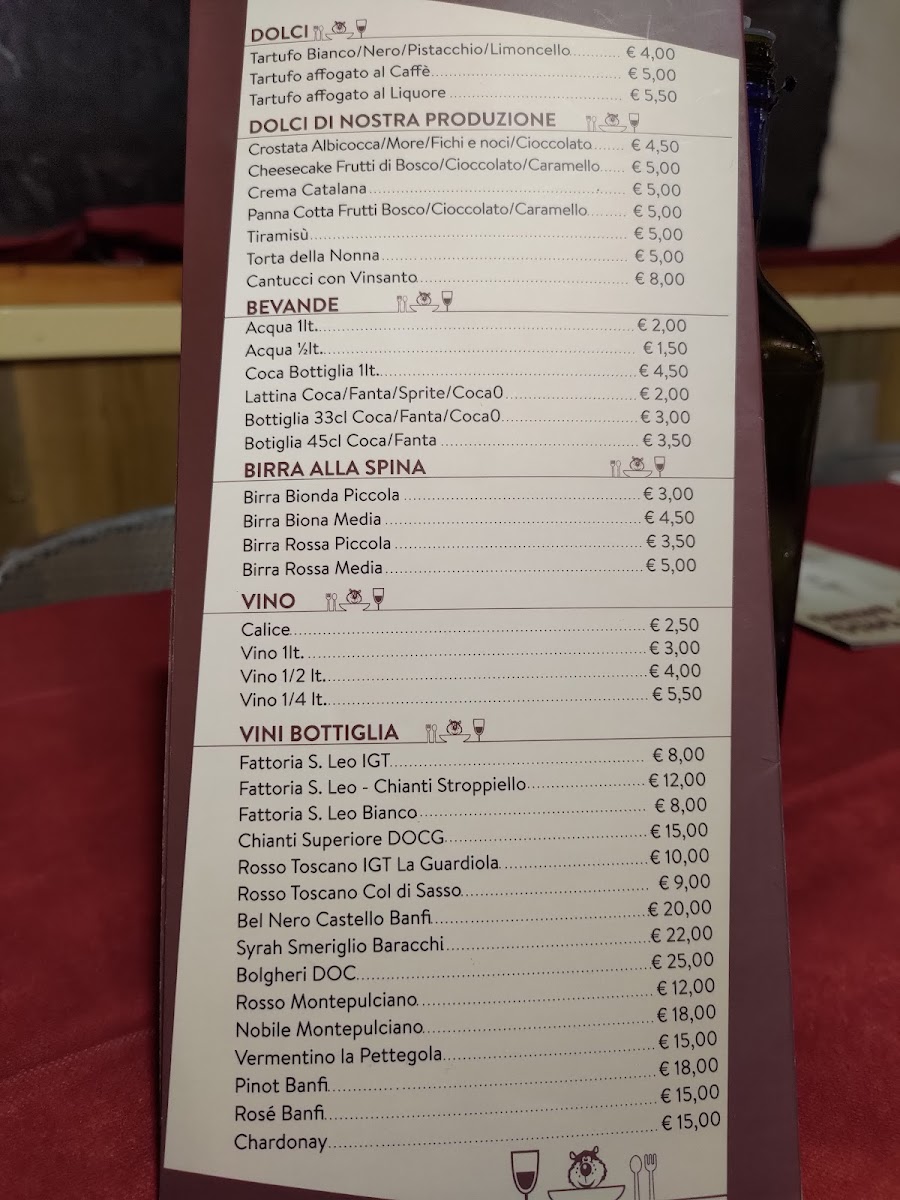 DOLCI
Tartufo Bianco/Nero/Pistacchio/Limoncello.......... € 4,00
Tartufo affogato al Caffè.......... € 5,00
Tartufo affogato al Liquore.......... € 5,50
DOLCI DI NOSTRA PRODUZIONE
Crostata Albicocca/More/Fichi e noci/Cioccolato....... € 4,50
Cheesecake Frutti di Bosco/Cioccolato/Caramello...... € 5,00
Crema Catalana.......... € 5,00
Panna Cotta Frutti Bosco/Cioccolato/Caramello......... € 5,00
Tiramisù.......... € 5,00
Torta della Nonna.......... € 5,00
Cantucci con Vinsanto.......... € 8,00
BEVANDE
Acqua 1lt.......... € 2,00
Acqua ½lt.......... € 1,50
Coca Bottiglia 1lt.......... € 4,50
Lattina Coca/Fanta/Sprite/Coca0.......... € 2,00
Bottiglia 33cl Coca/Fanta/Coca0.......... € 3,00
Botiglia 45cl Coca/Fanta.......... € 3,50
BIRRA ALLA SPINA
Birra Bionda Piccola.......... € 3,00
Birra Biona Media.......... € 4,50
Birra Rossa Piccola.......... € 3,50
Birra Rossa Media.......... € 5,00
VINO
Calice.......... € 2,50
Vino 1lt.......... € 3,00
Vino 1/2 lt.......... € 4,00
Vino 1/4 lt.......... € 5,50
VINI BOTTIGLIA
Fattoria S. Leo IGT.......... € 8,00
Fattoria S. Leo - Chianti Stroppiello.......... € 12,00
Fattoria S. Leo Bianco.......... € 8,00
Chianti Superiore DOCG.......... € 15,00
Rosso Toscano IGT La Guardiola.......... € 10,00
Rosso Toscano Col di Sasso.......... € 9,00
Bel Nero Castello Banfi.......... € 20,00
Syrah Smeriglio Baracchi.......... € 22,00
Bolgheri DOC.......... € 25,00
Rosso Montepulciano.......... € 12,00
Nobile Montepulciano.......... € 18,00
Vermentino la Pettegola.......... € 15,00
Pinot Banfi.......... € 18,00
Rosé Banfi.......... € 15,00
Chardonay.......... € 15,00